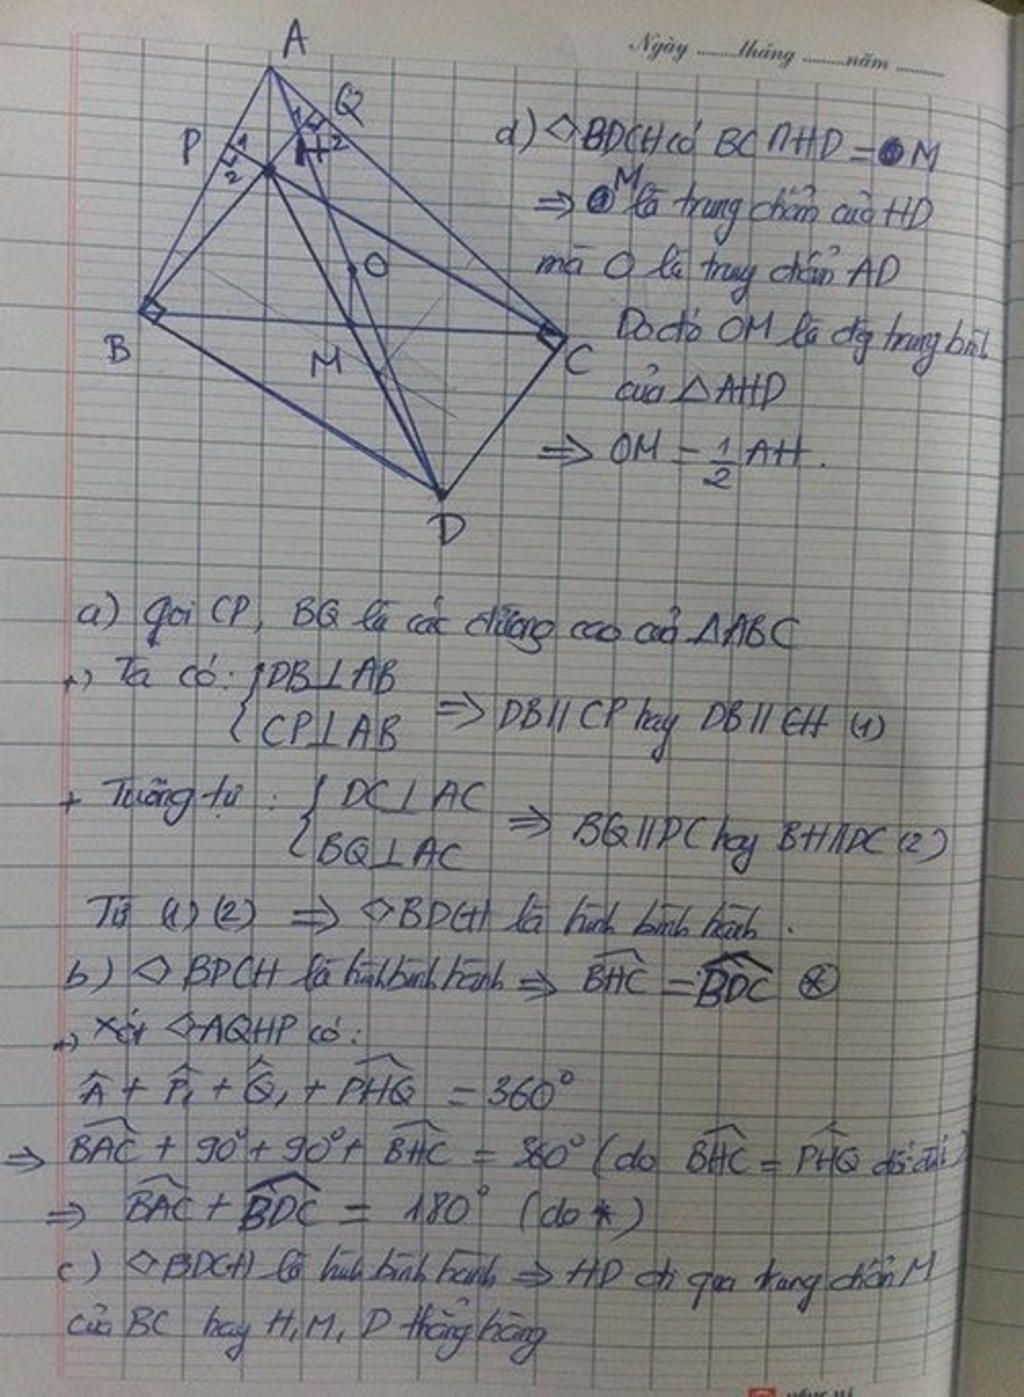 Ngày ........tháng ........năm ........
A
Q
P
1
2
1
2
H
O
B
M
C
D
d) ◇BDCH có BC ∩ HD = M
=> M là trung điểm của HD
mà O là trung điểm AD
Do đó OM là đg trung bình
của △AHD
=> OM = 1/2 AH.
a) Gọi CP, BQ là các đường cao của △ABC
+) Ta có: { DB⊥AB
CP⊥AB => DB//CP hay DB//CH (1)
+ Tương tự : { DC⊥AC
BQ⊥AC => BQ//DC hay BH//DC (2)
Từ (1) (2) => ◇BDCH là hình bình hành.
b) ◇BDCH là hình bình hành => \widehat{BHC} = \widehat{BDC} (*)
+) Xét ◇AQHP có:
Â + P̂₁ + Q̂₁ + \widehat{PHQ} = 360°
=> \widehat{BAC} + 90° + 90° + \widehat{BHC} = 360° (do \widehat{BHC} = \widehat{PHQ} đối đỉnh)
=> \widehat{BAC} + \widehat{BDC} = 180° (do *)
c) ◇BDCH là hình bình hành => HD đi qua trung điểm M
của BC hay H, M, D thẳng hàng